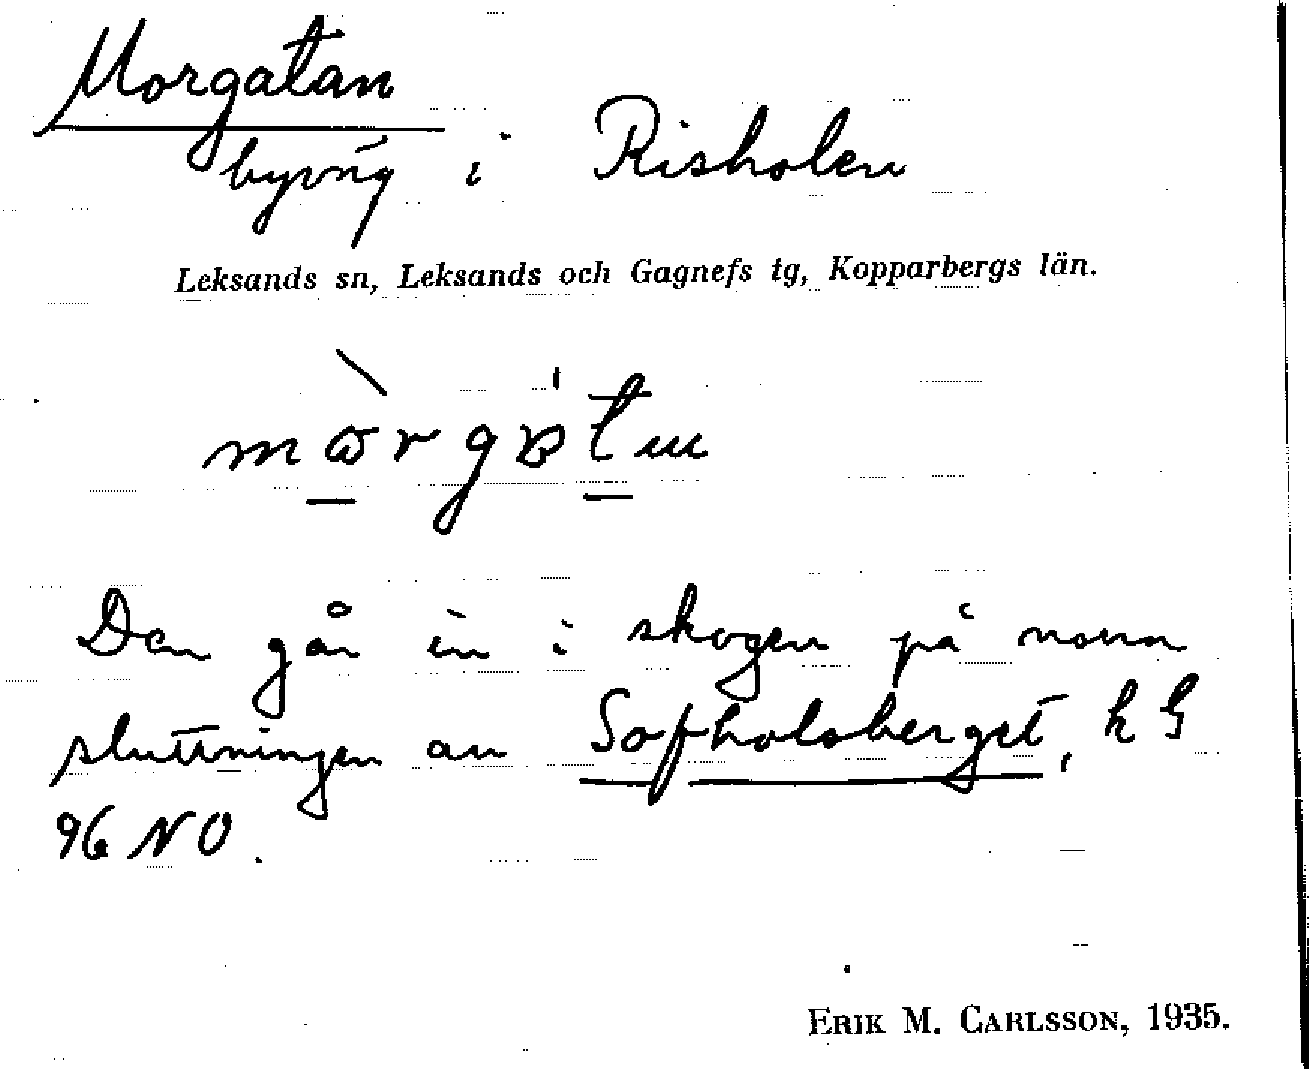 Morgatan
byväg i Risholen
Leksands sn, Leksands och Gagnefs tg, Kopparbergs län.
Den går in i skogen på norra
sluttningen av Sopholsberget, k G
96 NO.
ERIK M. CARLSSON, 1935.